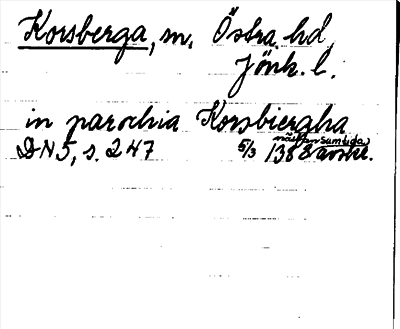 Korsberga, sn. Östra hd
Jönk. l.
in parochia Korsbiergha
nästan samtida
DN 5, s. 247 5/3 1388 avskr.